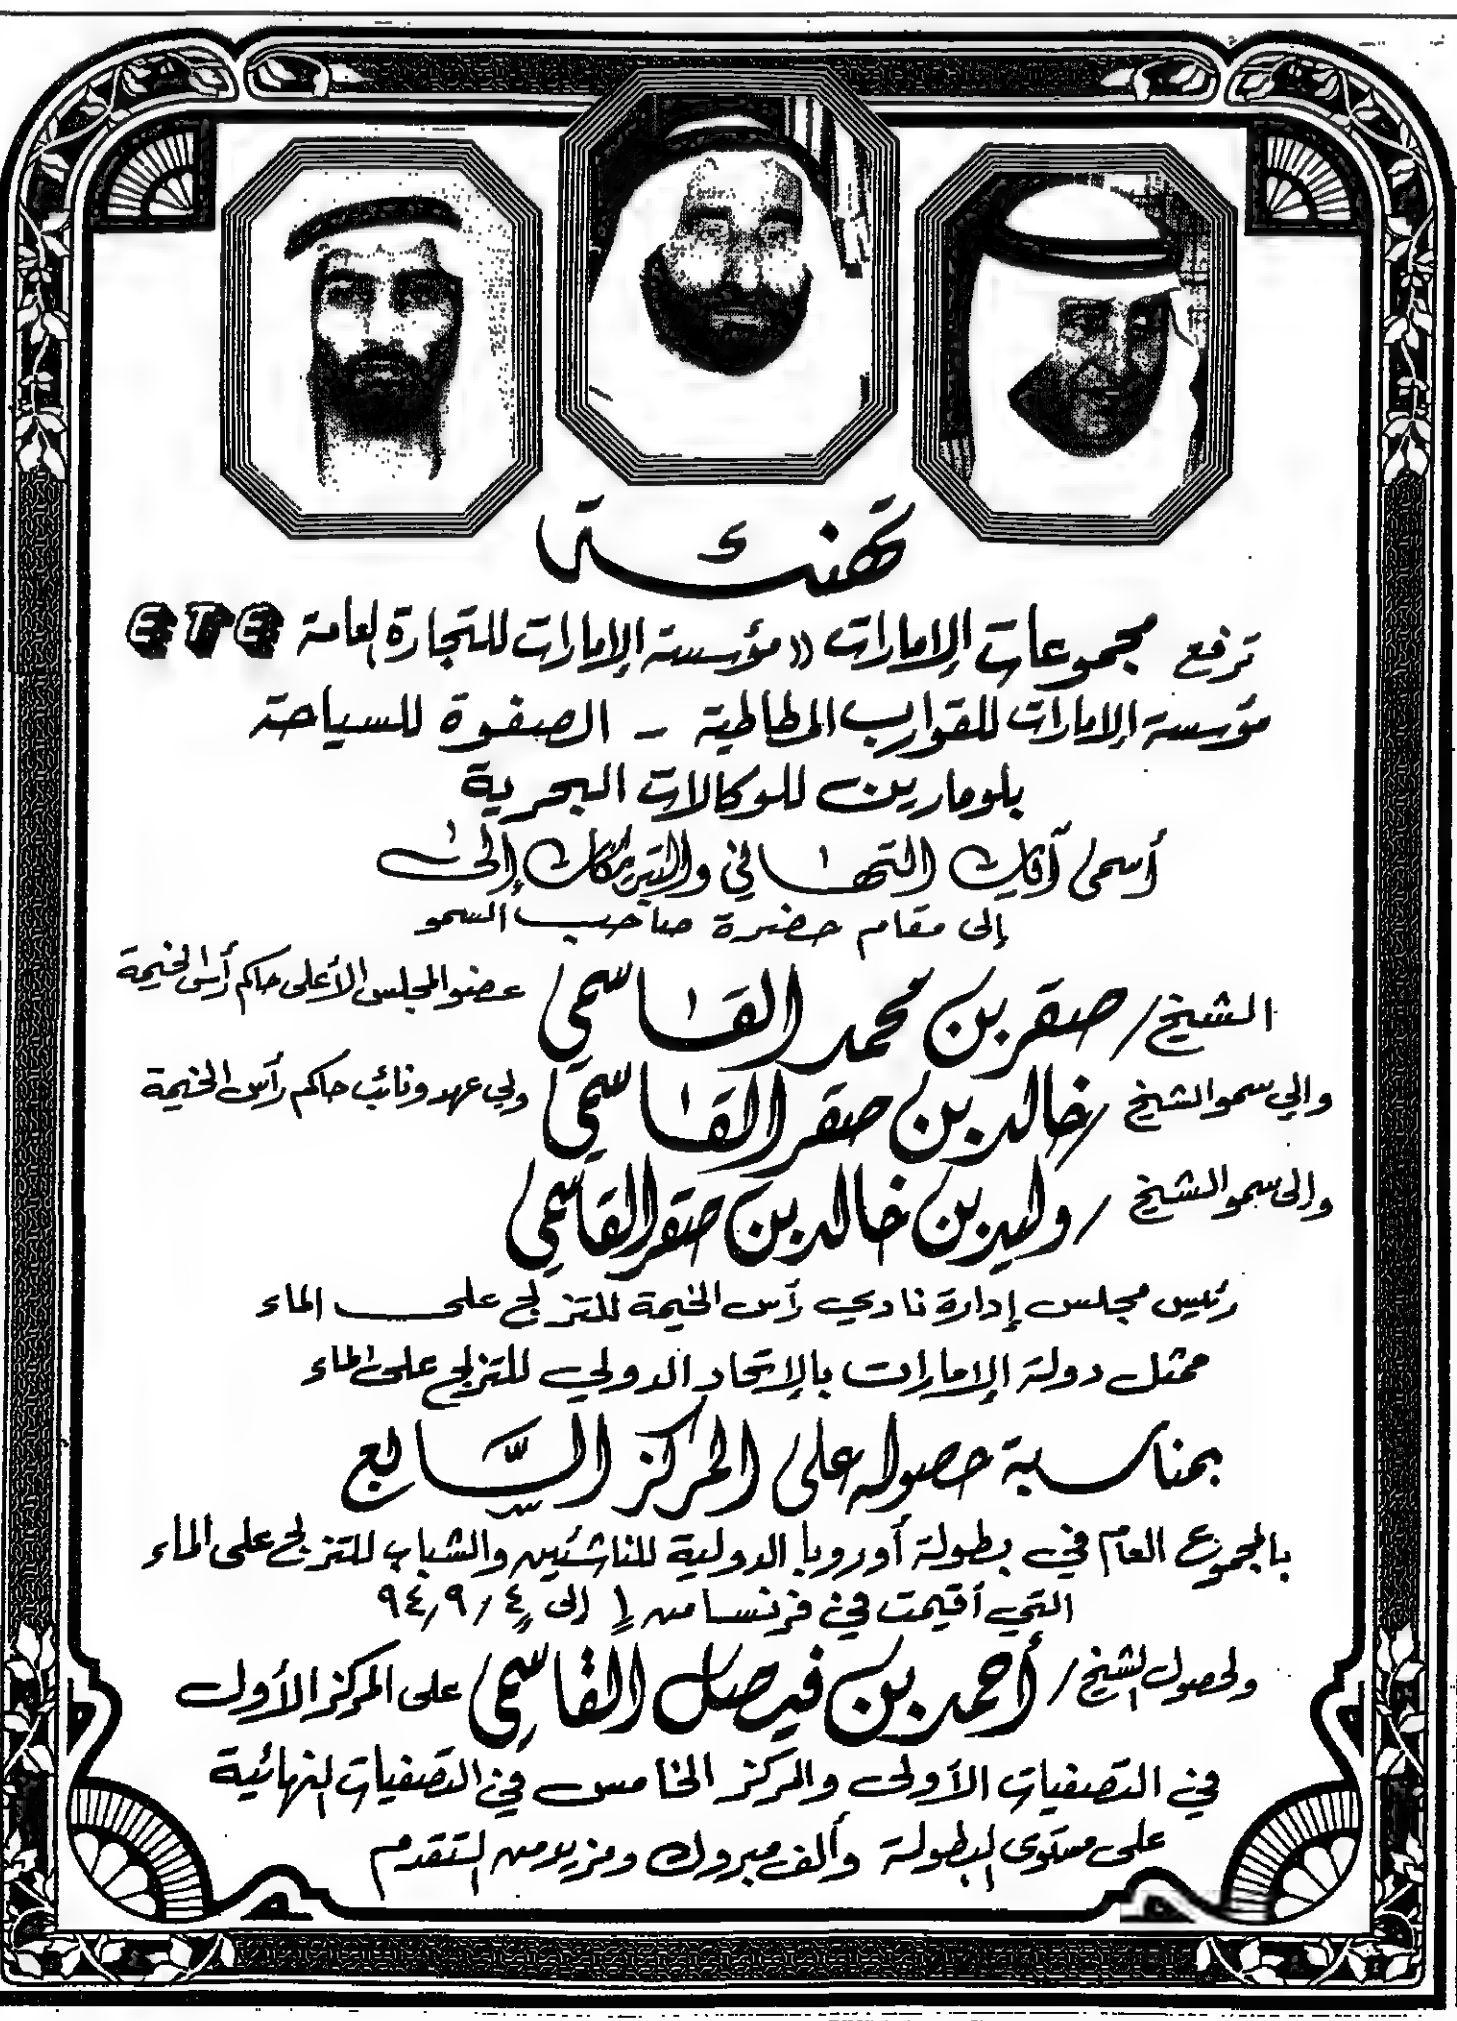 تهنئة
ترفع مجموعات الإمارات «مؤسسة الإمارات للتجارة العامة ETE
مؤسسة الإمارات للقوارب المطاطية - الصفوة للسياحة
بلومارين للوكالات البحرية
أسمى آيات التهاني والتبريكات إلى
إلى مقام حضرة صاحب السمو
الشيخ/ صقر بن محمد القاسمي عضو المجلس الأعلى حاكم رأس الخيمة
والى سمو الشيخ /خالد بن صقر القاسمي ولي عهد ونائب حاكم رأس الخيمة
والى سمو الشيخ / وليد بن خالد بن صقر القاسمي
رئيس مجلس إدارة نادي رأس الخيمة للتزلج على الماء
ممثل دولة الإمارات بالإتحاد الدولي للتزلج على الماء
بمناسبة حصوله على المركز السابع
بالمجموع العام في بطولة أوروبا الدولية للناشئين والشباب للتزلج على الماء
التي أقيمت في فرنسا من ١ إلى ٤/٩/٩٤
ولحصول الشيخ/ أحمد بن فيصل القاسمي على المركز الأول
في التصفيات الأولى والمركز الخامس في التصفيات النهائية
على مستوى البطولة وألف مبروك ومزيد من التقدم